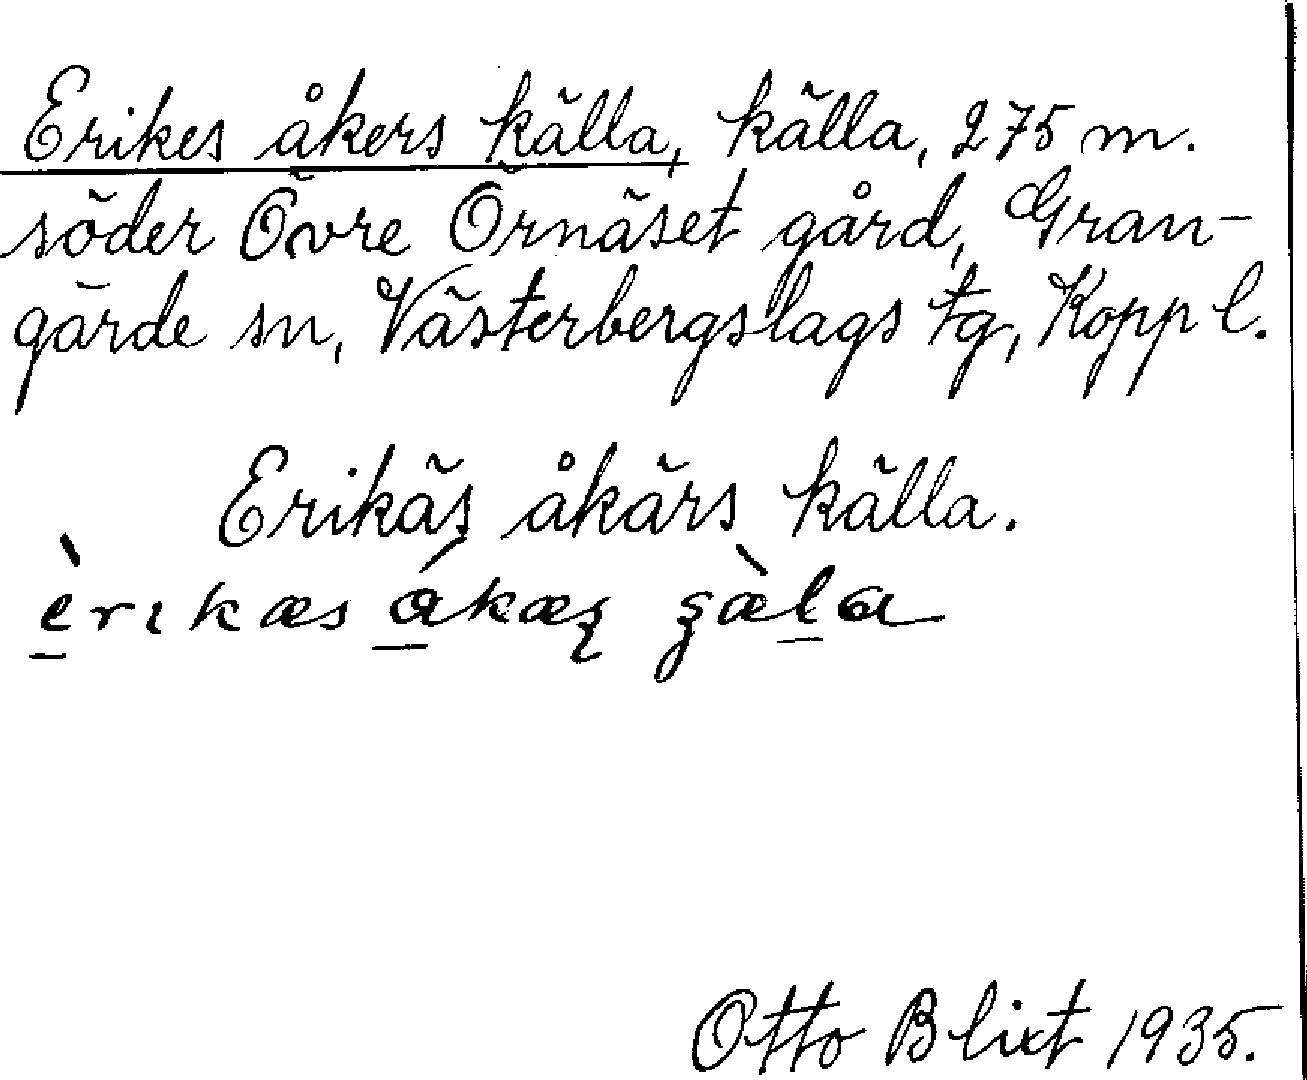 Erikes åkers källa, källa, 275 m.
söder Övre Örnäset gård, Gran-
gärde sn, Västerbergslags tg, Kopp l.
Erikäs åkärs källa.
èrıkæs ákæ
Otto Blixt 1935.